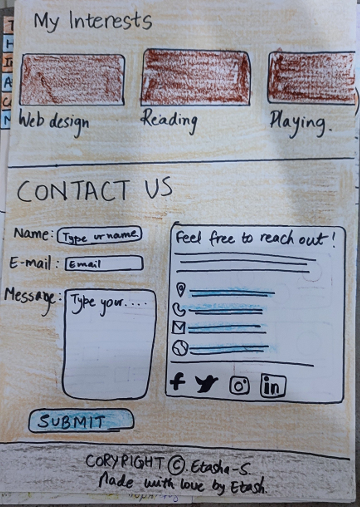 My Interests
Web design
Reading
Playing.
CONTACT US
Name: Type ur name
E-mail: Email
Message: Type your....
SUBMIT
Feel free to reach out!
f
in
COPYRIGHT © Etasha-S.
Made with love by Etash.